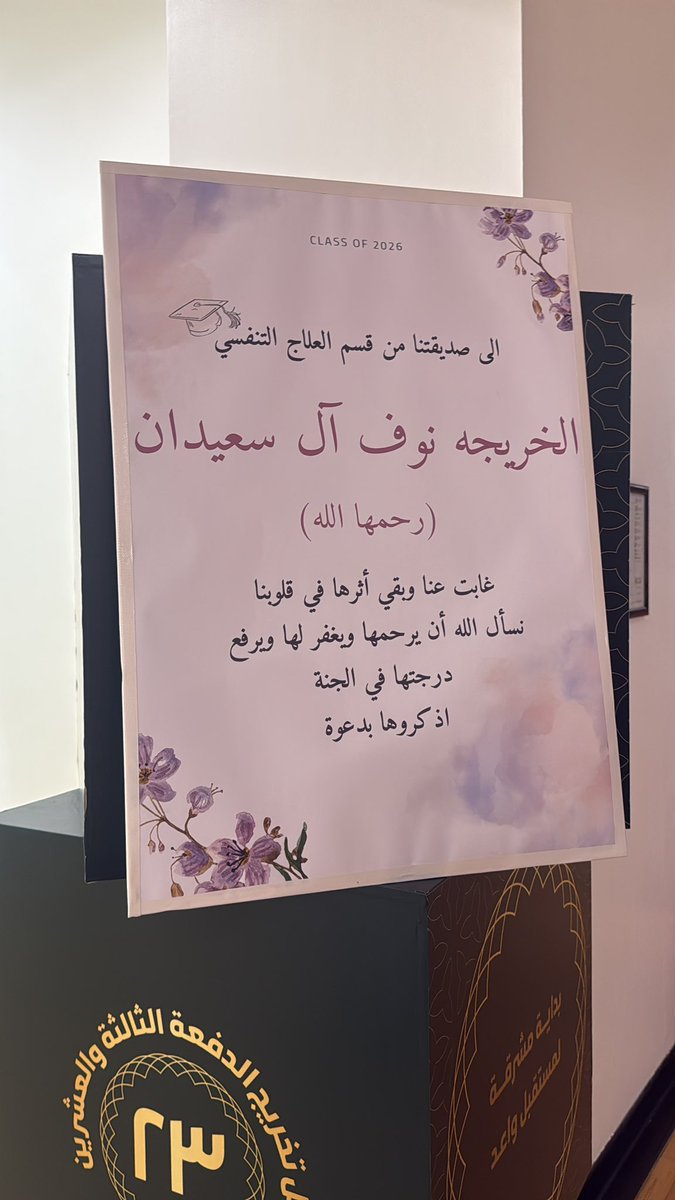 CLASS OF 2026
الى صديقتنا من قسم العلاج التنفسي
الخريجه نوف آل سعيدان
(رحمها الله)
غابت عنا وبقي أثرها في قلوبنا
نسأل الله أن يرحمها ويغفر لها ويرفع
درجتها في الجنة
اذكروها بدعوة
تخريج الدفعة الثالثة والعشرين
٢٣
بداية مشرقة
لمستقبل واعد